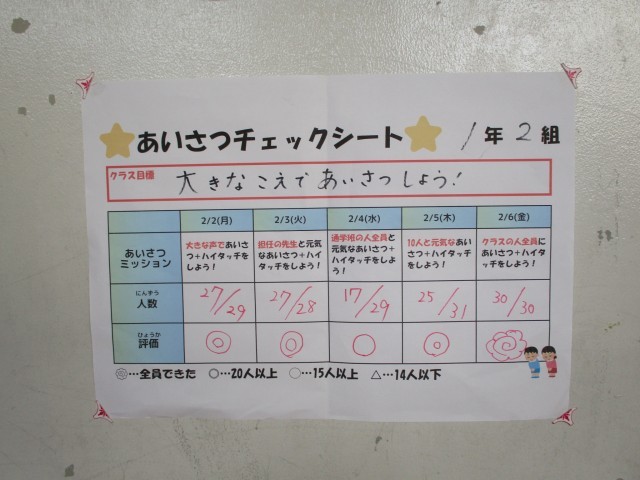 あいさつチェックシート 1年2組
クラス目標 大きなこえで あいさつ しよう!
2/2(月) 2/3(火) 2/4(水) 2/5(木) 2/6(金)
あいさつミッション
大きな声であいさつ+ハイタッチをしよう!
担任の先生と元気なあいさつ+ハイタッチをしよう!
通学班の人全員と元気なあいさつ+ハイタッチをしよう!
10人と元気なあいさつ+ハイタッチをしよう!
クラスの人全員にあいさつ+ハイタッチをしよう!
にんずう
人数 27/29 27/28 17/29 25/31 30/30
ひょうか
評価 ◎ ◎ ○ ◎
…全員できた ○…20人以上 ○…15人以上 △…14人以下